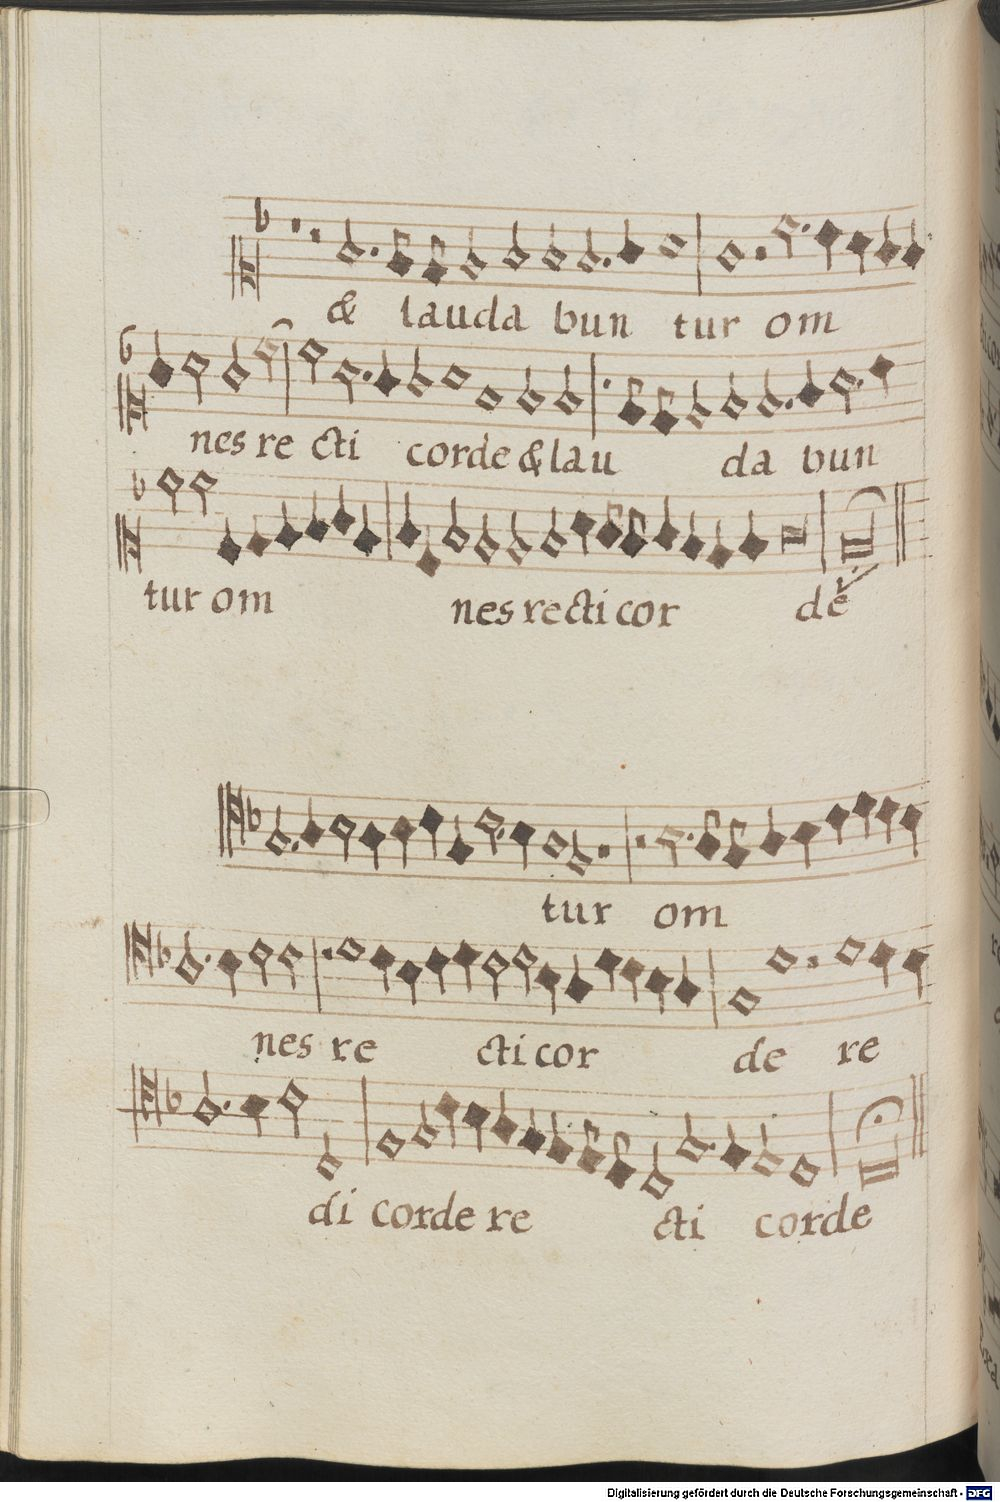 & lauda bun tur om
nes re cti corde & lau da bun
tur om nes recti cor de
tur om
nes re cti cor de re
di corde re cti corde
Digitalisierung gefördert durch die Deutsche Forschungsgemeinschaft - DFG